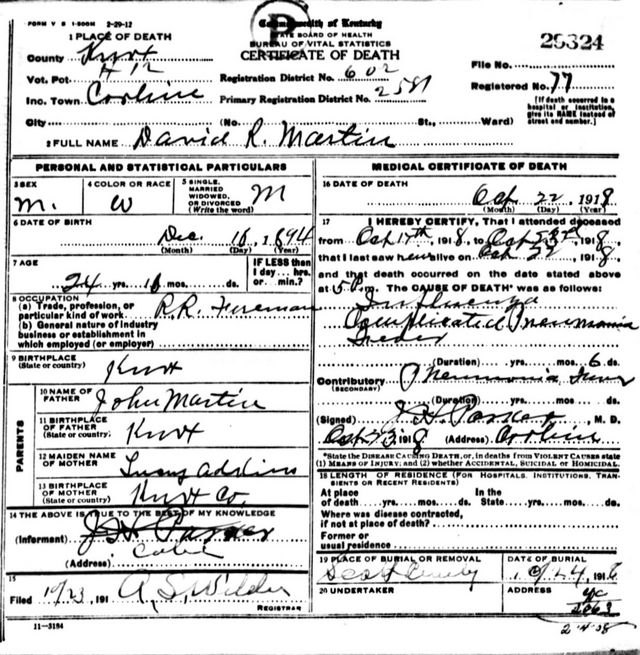 FORM V S 1-500M 2-29-12
Commonwealth of Kentucky
STATE BOARD OF HEALTH
BUREAU OF VITAL STATISTICS
CERTIFICATE OF DEATH
25324
1 PLACE OF DEATH
County Knox
Vot. Pct
Inc. Town Corbin
City (No. St., Ward)
Registration District No. 602
Primary Registration District No.
File No.
Registered No. 77
[If death occurred in a hospital or institution, give its NAME instead of street and number.]
2 FULL NAME David R. Martin
PERSONAL AND STATISTICAL PARTICULARS
3 SEX
M.
4 COLOR OR RACE
W
5 SINGLE, MARRIED WIDOWED, OR DIVORCED (Write the word)
M
6 DATE OF BIRTH
Dec. 16, 1894
(Month) (Day) (Year)
7 AGE
24 yrs. mos. ds.
IF LESS than
1 day... hrs.
or min.?
8 OCCUPATION
(a) Trade, profession, or
particular kind of work R.R. Fireman
(b) General nature of industry
business or establishment in
which employed (or employer)
9 BIRTHPLACE
(State or country)
Knox
PARENTS
10 NAME OF
FATHER John Martin
11 BIRTHPLACE
OF FATHER
(State or country)
Knox
12 MAIDEN NAME
OF MOTHER
13 BIRTHPLACE
OF MOTHER
(State or country)
Knox Co
14 THE ABOVE IS TRUE TO THE BEST OF MY KNOWLEDGE
(Informant) Parker
(Address)
15
Filed 10/23, 191 A. S. Wilder
REGISTRAR
11-3184
MEDICAL CERTIFICATE OF DEATH
16 DATE OF DEATH
22, 1918
(Month) (Day) (Year)
17 I HEREBY CERTIFY, That I attended deceased
from 17th, 1918, to 1918,
that I last saw alive on 22 1918
and that death occurred on the date stated above
at 5 P.m. The CAUSE OF DEATH* was as follows:
Influenza
Complicated Pneumonia
(Duration) yrs. mos. 6 ds.
Contributory Pneumonia
(SECONDARY)
(Duration) yrs. mos. ds.
(Signed) Parker, M. D.
1918 (Address) Corbin
*State the DISEASE CAUSING DEATH, or, in deaths from VIOLENT CAUSES state
(1) MEANS OF INJURY; and (2) whether ACCIDENTAL, SUICIDAL or HOMICIDAL.
18 LENGTH OF RESIDENCE (FOR HOSPITALS, INSTITUTIONS, TRANSIENTS OR RECENT RESIDENTS)
At place In the
of death yrs. mos. ds. State yrs. mos. ds.
Where was disease contracted,
if not at place of death?
Former or
usual residence
19 PLACE OF BURIAL OR REMOVAL
DATE OF BURIAL
10/24, 1918
20 UNDERTAKER
ADDRESS